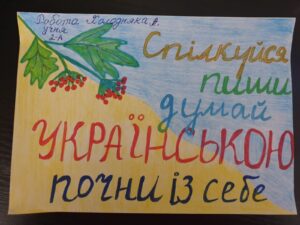 Робота Холодняка А.
учня
2-А
Спілкуйся
пиши
думай
УКРАЇНСЬКОЮ
ПОЧНИ ІЗ СЕБЕ